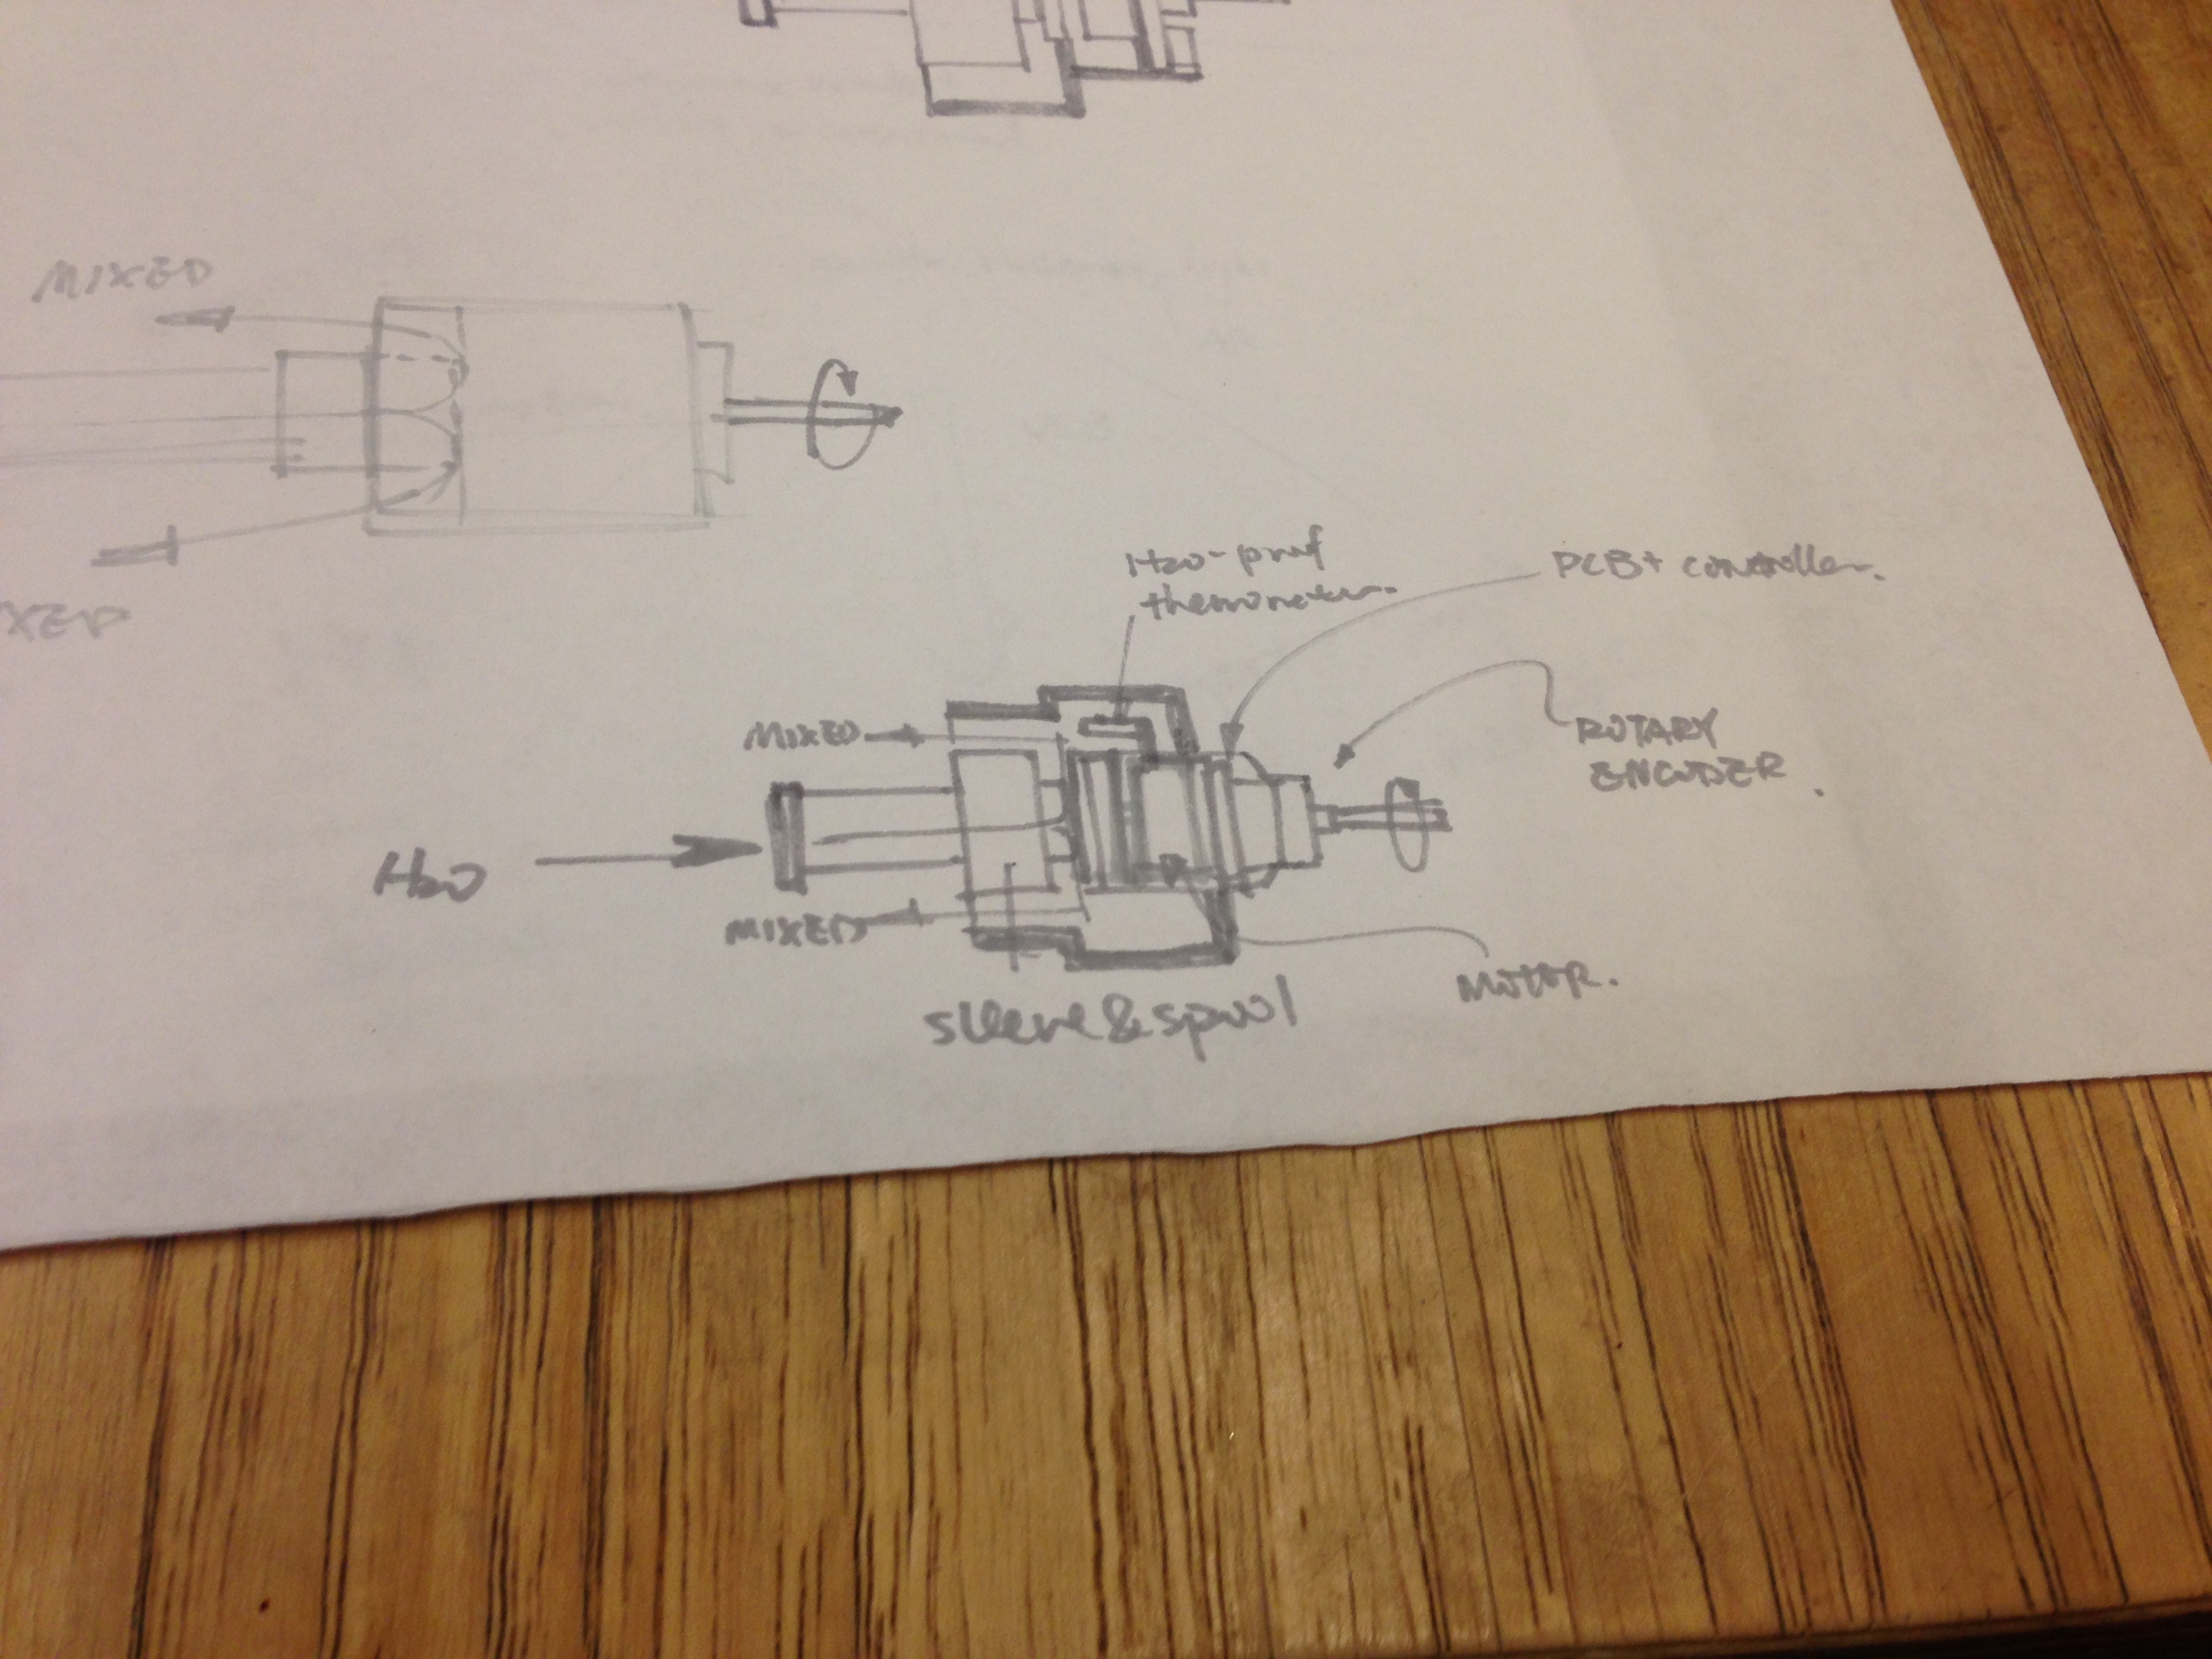 MIXED
XED
H20-pruf
thermometer.
PCB+ controller.
MIXED
ROTARY
ENCODER.
H2O
MIXED
MOTOR.
sleeve&spool